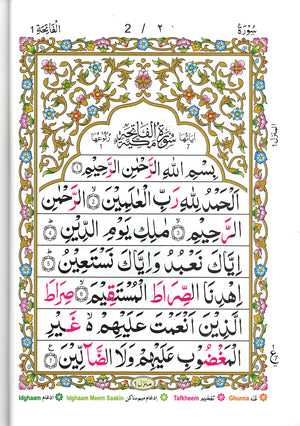 الفَاتِحَة 1 2 / ٢ سُورَة
سُورَةُ الْفَاتِحَةِ مَكِّيَّةٌ
بِسْمِ اللهِ الرَّحْمٰنِ الرَّحِيْمِ
اَلْحَمْدُ لِلّٰهِ رَبِّ الْعٰلَمِيْنَ الرَّحْمٰنِ
الرَّحِيْمِ مٰلِكِ يَوْمِ الدِّيْنِ
اِيَّاكَ نَعْبُدُ وَاِيَّاكَ نَسْتَعِيْنُ
اِهْدِنَا الصِّرَاطَ الْمُسْتَقِيْمَ صِرَاطَ
الَّذِيْنَ اَنْعَمْتَ عَلَيْهِمْ غَيْرِ
الْمَغْضُوْبِ عَلَيْهِمْ وَلَا الضَّآلِّيْنَ
منزل ١
Idghaam ادغام Idghaam Meem Saakin ادغام ميم ساكن Tafkheem تفخيم Ghunna غنه